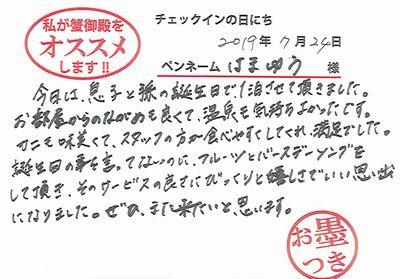 私が蟹御殿を
オススメ
します!!
チェックインの日にち
2019年 7月 24日
ペンネーム はまゆう 様
今日は、息子と孫の誕生日で1泊させて頂きました。
お部屋からのながめも良くて、温泉も気持ちよかったです。
カニも味美くて、スタッフの方が食べやすくしてくれ、満足でした。
誕生日の事を言ってないのに、フルーツとバースデーソングを
して頂き、そのサービスの良さにびっくりと嬉しさでいい思い出
になりました。ぜひ、また来たいと思います。
お墨
つき